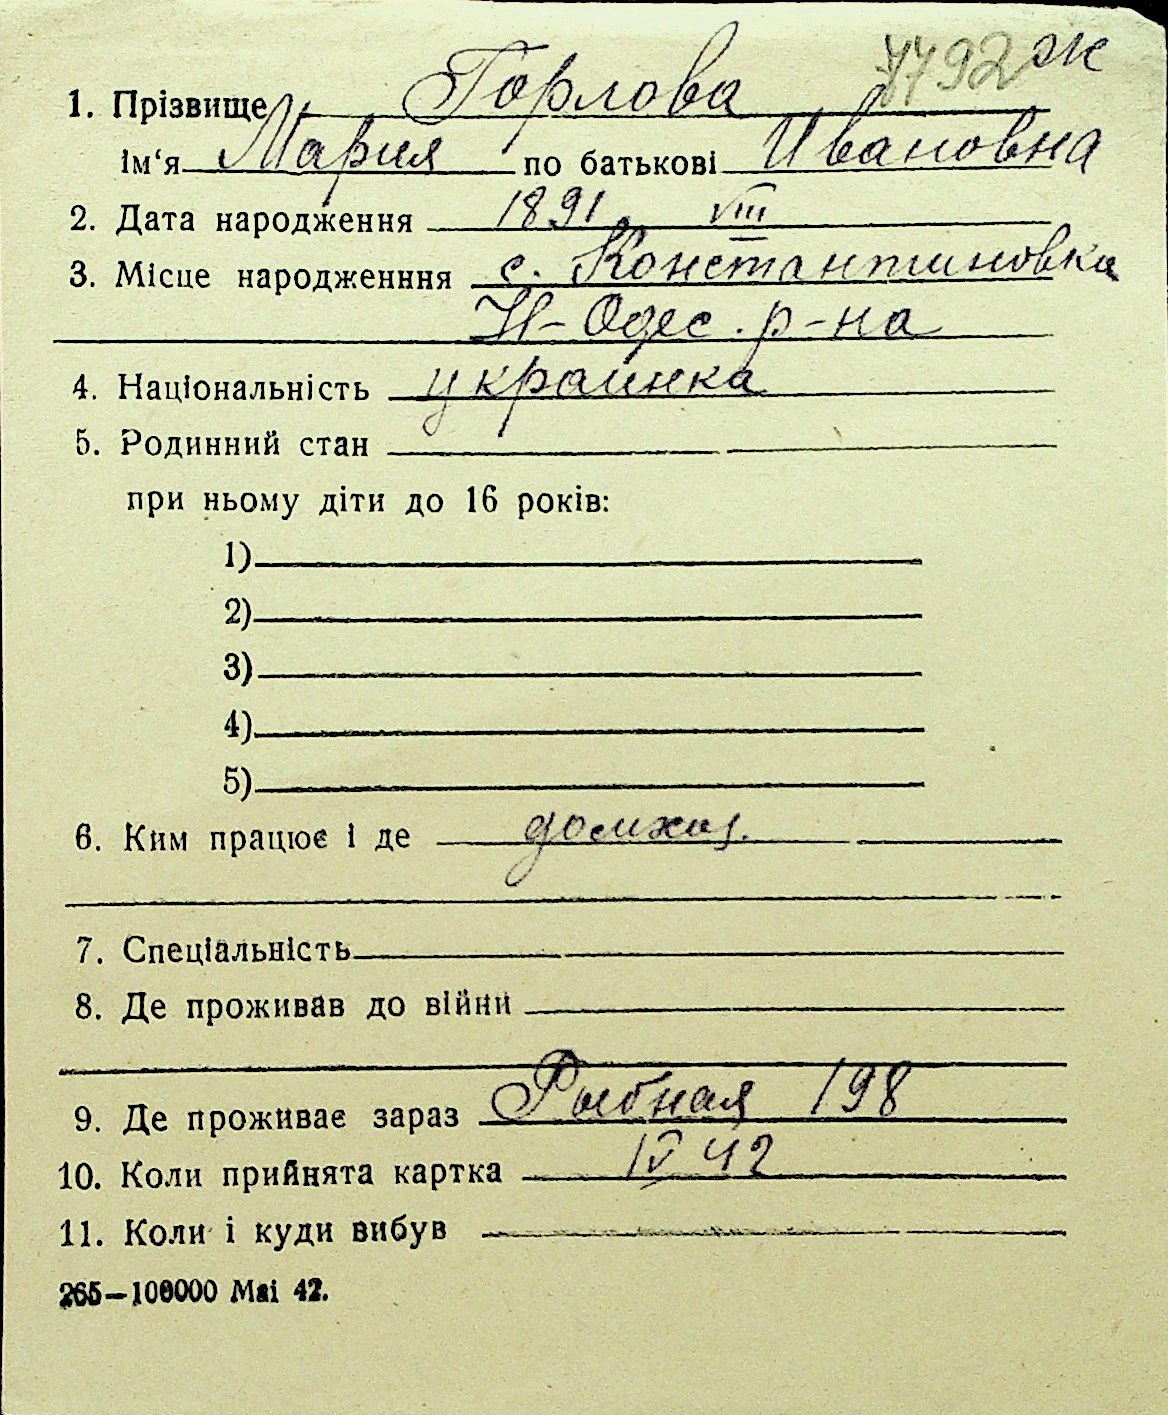 7792 ж
1. Прізвище Горлова
Ім‘я Мария по батькові Ивановна
2. Дата народження 1891 VIII
3. Місце народженння с. Константиновка
Н-Одес. р-на
4. Національність украинка
5. Родинний стан
при ньому діти до 16 років:
1)
2)
3)
4)
5)
6. Ким працює і де домхоз.
7. Спеціальність
8. Де проживав до війни
9. Де проживає зараз Рыбная 198
10. Коли прийнята картка IV 42
11. Коли і куди вибув
265—100000 Mai 42.